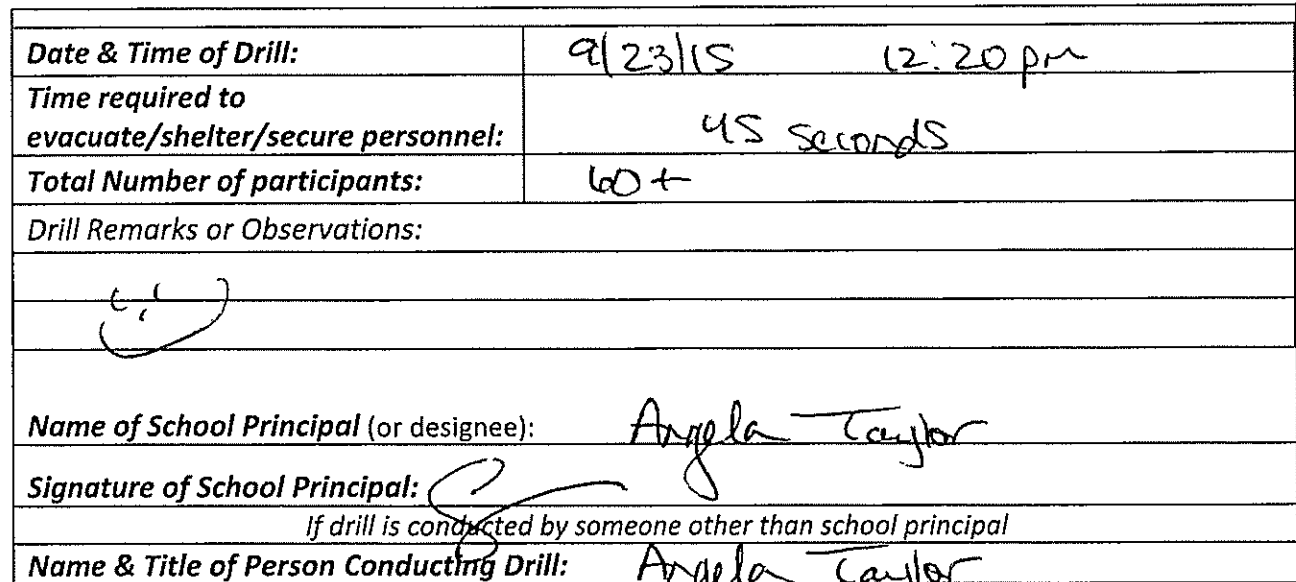 Date & Time of Drill: 9/23/15 12:20 pm
Time required to
evacuate/shelter/secure personnel: 45 seconds
Total Number of participants: 60+
Drill Remarks or Observations:
Name of School Principal (or designee): Angela Taylor
Signature of School Principal:
If drill is conducted by someone other than school principal
Name & Title of Person Conducting Drill: Angela Taylor